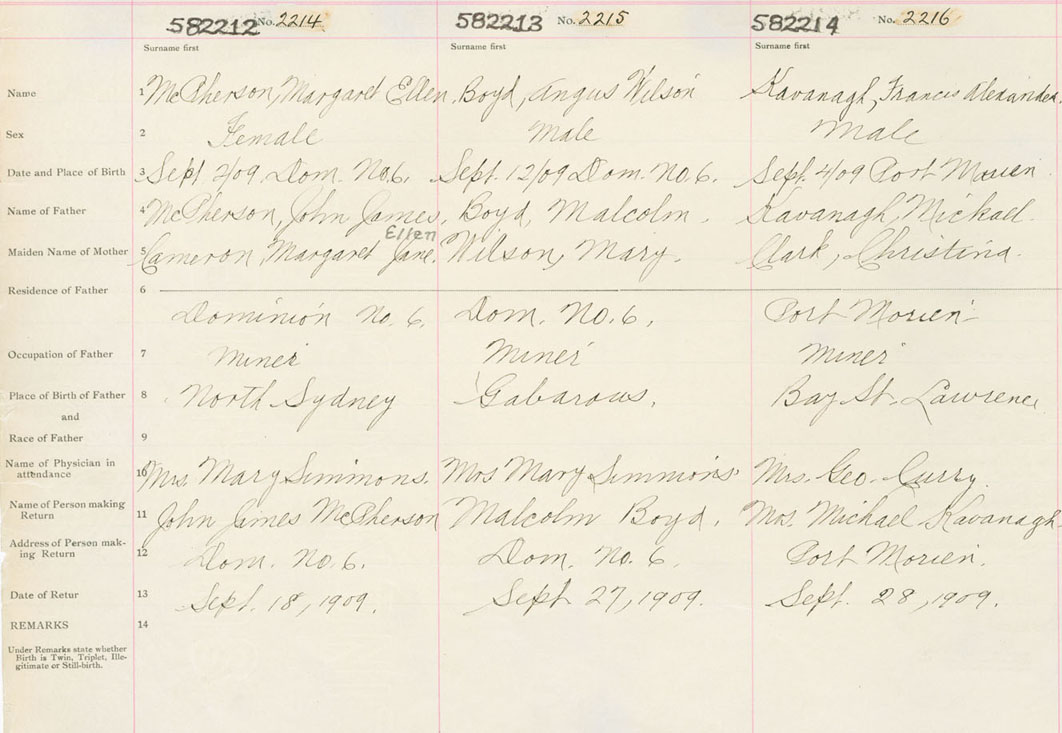 582212 No. 2214 582213 No. 2215 582214 No. 2216
Surname first Surname first Surname first
Name 1 McPherson, Margaret Ellen. Boyd, Angus Wilson Kavanagh, Francis Alexander.
Sex 2 Female Male Male
Date and Place of Birth 3 Sept 2/09. Dom. No.6. Sept. 12/09 Dom. No.6. Sept. 4/09 Port Morien
Name of Father 4 McPherson, John James. Boyd, Malcolm. Kavanagh, Michael.
Ellen
Maiden Name of Mother 5 Cameron, Margaret Jane. Wilson, Mary. Clark, Christina.
Residence of Father 6
Dominion No. 6. Dom. No.6. Port Morien
Occupation of Father 7 Miner Miner Miner
Place of Birth of Father 8 North Sydney Gabarous. Bay St. Lawrence
and
Race of Father 9
Name of Physician in
attendance 10 Mrs. Mary Simmons. Mrs Mary Simmons Mrs. Geo. Curry.
Name of Person making
Return 11 John James McPherson Malcolm Boyd. Mrs. Michael Kavanagh
Address of Person mak-
ing Return 12 Dom. No.6. Dom. No.6. Port Morien.
Date of Retur 13 Sept. 18, 1909. Sept 27, 1909. Sept. 28, 1909.
REMARKS 14
Under Remarks state whether
Birth is Twin, Triplet, Ille-
gitimate or Still-birth.